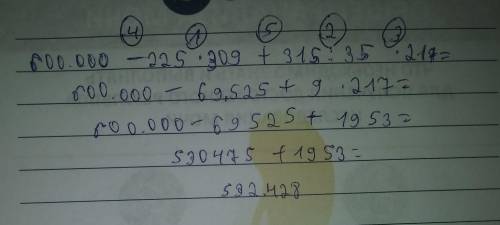 ④ ① ⑤ ② ③
600.000 - 225 · 309 + 315 : 35 · 217=
600.000 - 69.525 + 9 · 217=
600.000 - 69525 + 1953=
530475 + 1953=
532.428